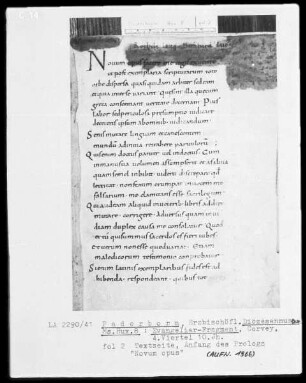 Nouum opus facere me cogis ex ueteri
ut post exemplaria scripturarum toto
orbe dispersa quasi quidam arbiter sedeam
et quia inter se uariant . Quae sint illa quae cum
greca consentiant ueritate decernam Pius
labor sed periculosa presumptio iudicare
de ceteris ipsum ab omnibus iudicandum
Senis mutare linguam et canescentem
mundum ad initia retrahere paruulorum
Quis enim doctus pariter uel indoctus . Cum
in manus uolumen assumpserit et a saliua
quam semel inbibit uiderit discrepare quod
lectitat . non statim erumpat in uocem me
falsarium . me clamans esse sacrilegum
Qui audeam aliquid in ueteribus libris adde-
re mutare . corrigere . Aduersus quam inui
diam duplex causa me consolatur . Quod
et tu qui summus sacerdos es fieri iubes .
Et uerum non esse quod uariat . Etiam
maledicorum testimonio conprobatur
Si enim latinis exemplaribus fides est ad
hibenda . respondeant . quibus
LA 2290/41 Paderborn, Erzbischöfl. Diözesanmus.
Ms. Hux. 8 : Evangeliar-Fragment. Corvey.
4. Viertel 10. Jh.
fol 2 Textseite, Anfang des Prologs
"Novum opus" (AUFN. 1966)